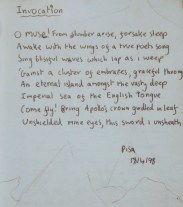 Invocation
O MUSE! From slumber arise, forsake sleep
Awake with the wings of a true poets song
Sing blissful waves which lap as I weep
'Gainst a cluster of embraces, graceful throng
An eternal island amongst the vasty deep
Imperial sea of the English Tongue
Come fly! Bring Apollo's crown girdled in leaf
Unshielded mine eyes, this sword I unsheath,